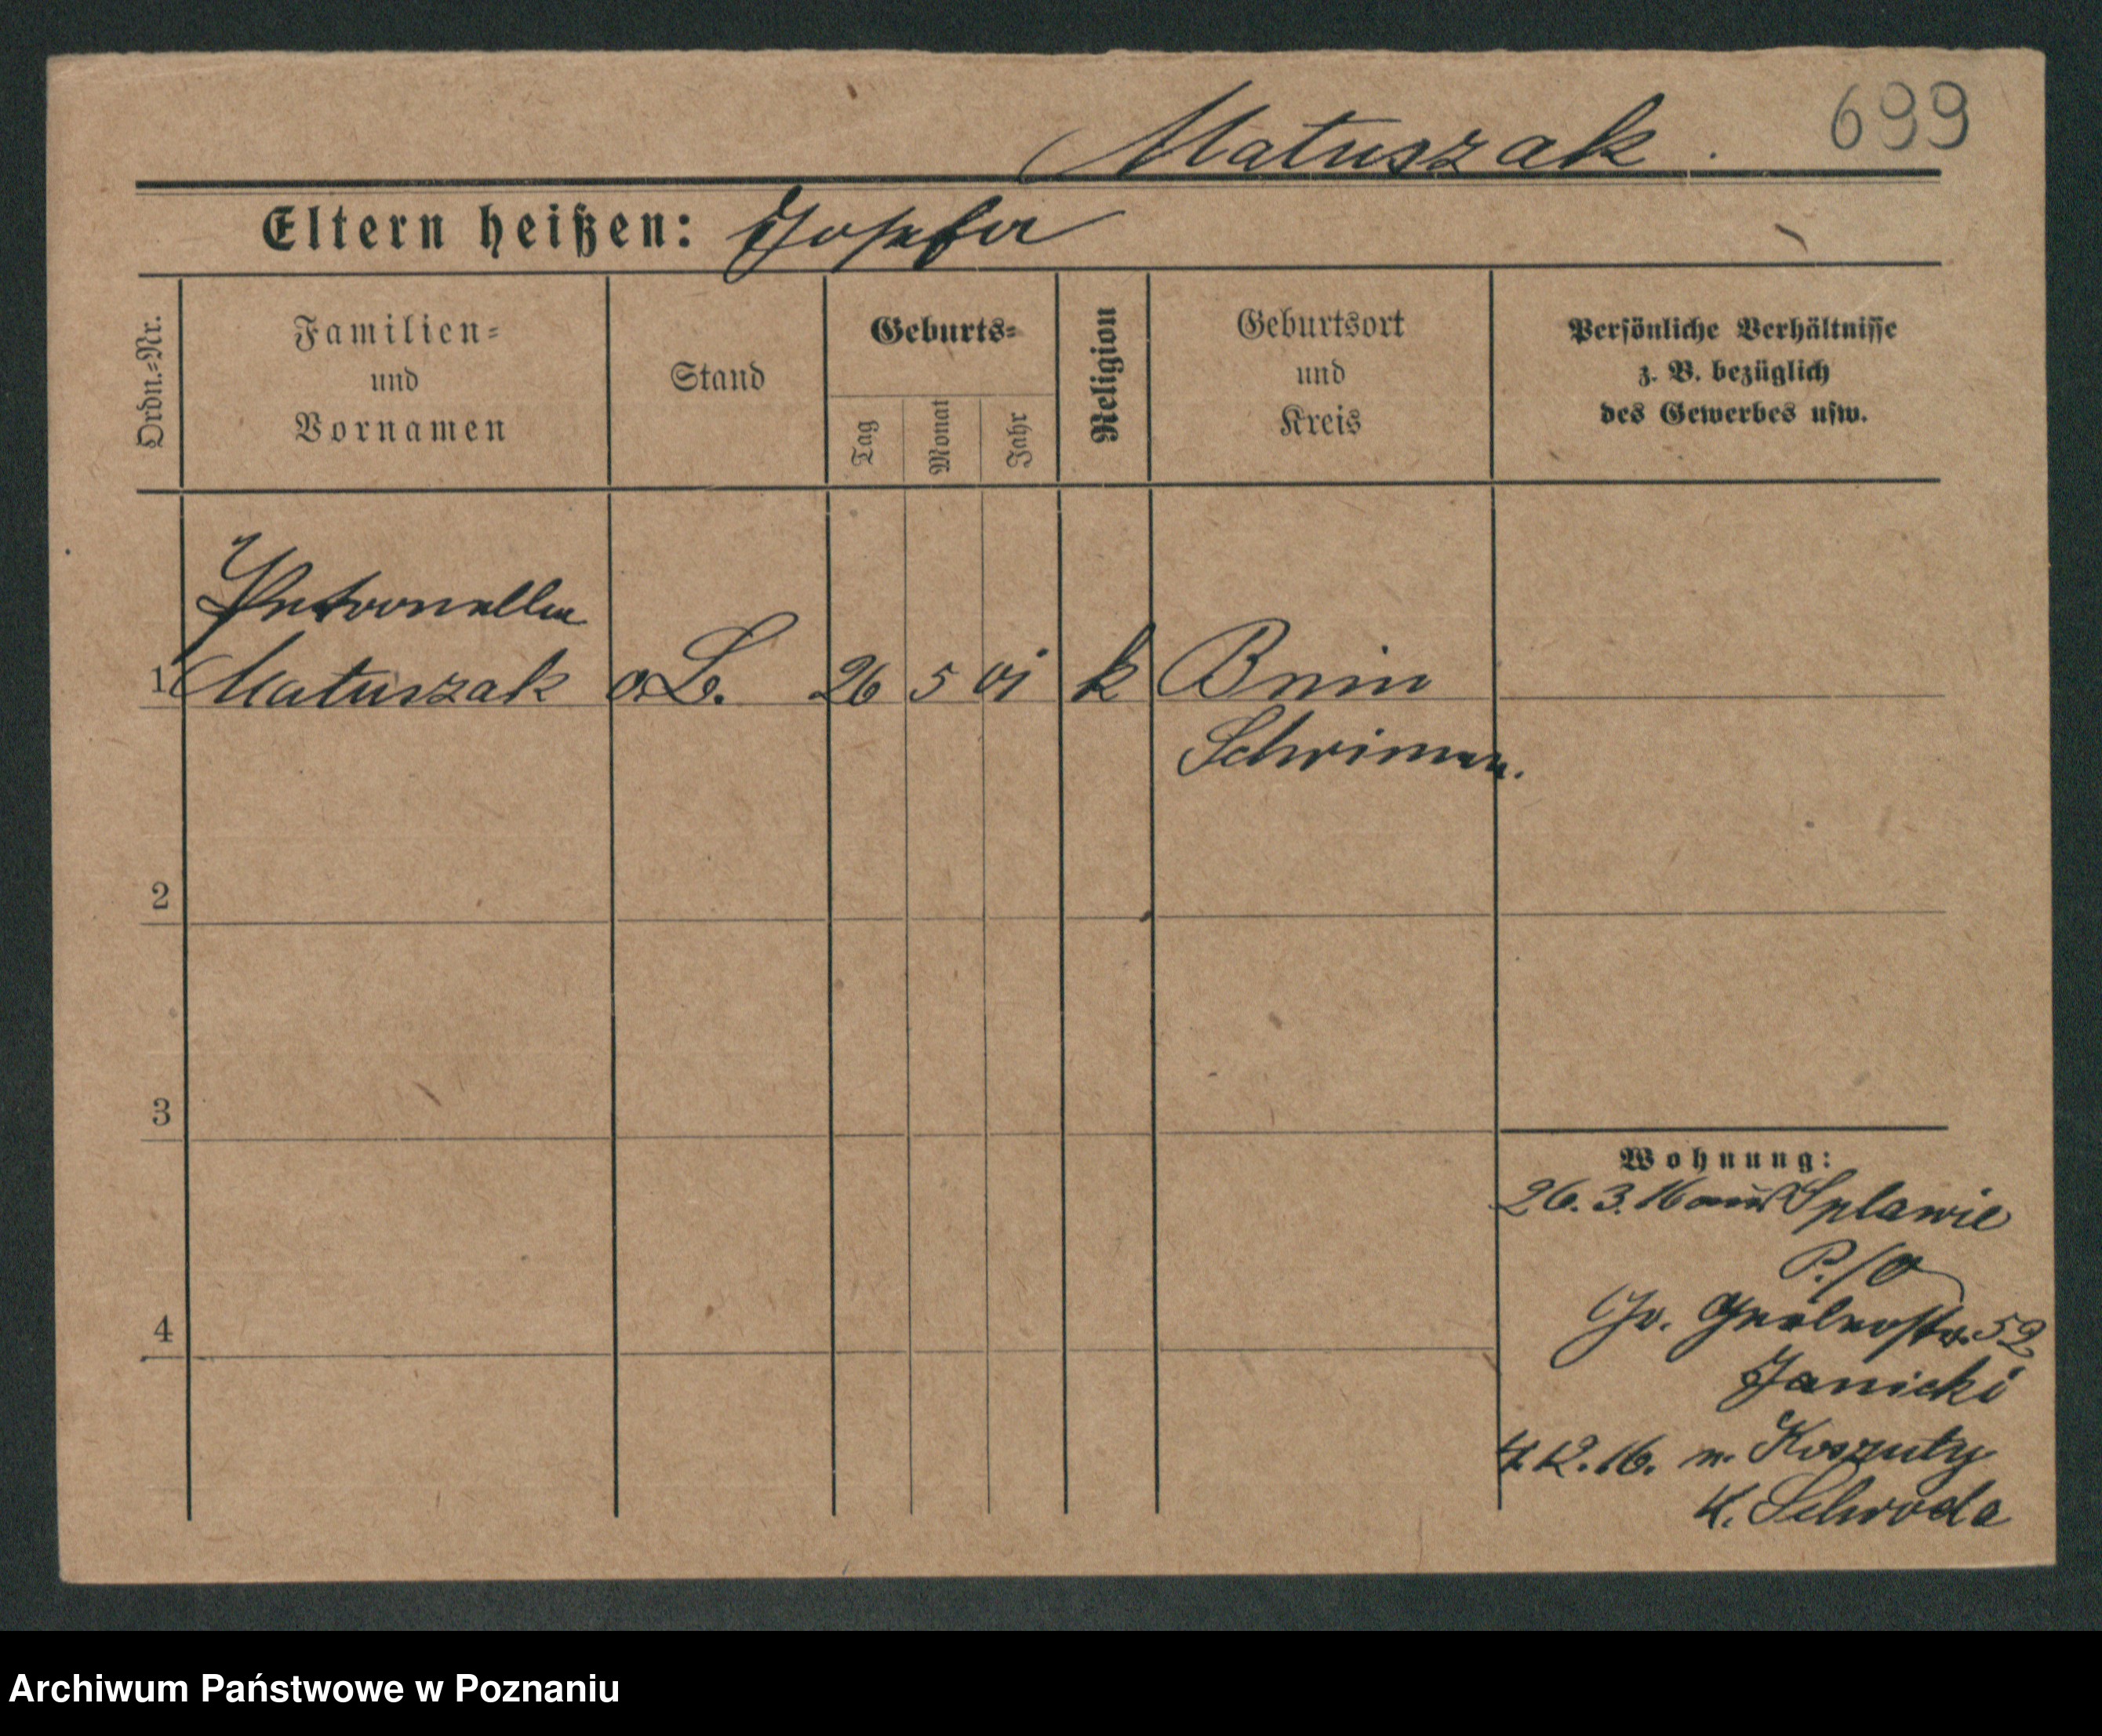 699
Matuszak.
Eltern heißen: Josefa
Ordn.-Nr.
Familien-
und
Vornamen
Stand
Geburts-
Tag
Monat
Jahr
Religion
Geburtsort
und
Kreis
Persönliche Verhältnisse
z. B. bezüglich
des Gewerbes usw.
Petronella
1 Matuszak o. 26 5 01 k Bnin
Schrimm.
2
3
4
Wohnung:
26. 3. 16 aus Splawie
P./O
Gr. Gerberstr. 52
Janicki
12. 16. n. Koszuty
K. Schroda
Archiwum Państwowe w Poznaniu